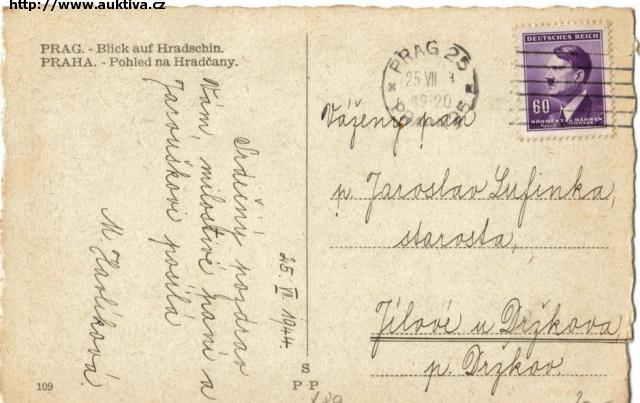 http://www.auktiva.cz
PRAG. - Blick auf Hradschin.
PRAHA. - Pohled na Hradčany.
Srdečný pozdrav
Vám, milostivé paní a
Jarouškovi posílá
M. Havlíková.
25. VII 1944
109
S
P P
PRAG 25
25 VII
19-20
DEUTSCHES REICH
60
BÖHMEN U. MÄHREN
Vážený pan
p. Jaroslav Lufinka,
starosta,
Jílové u Držkova
p. Držkov